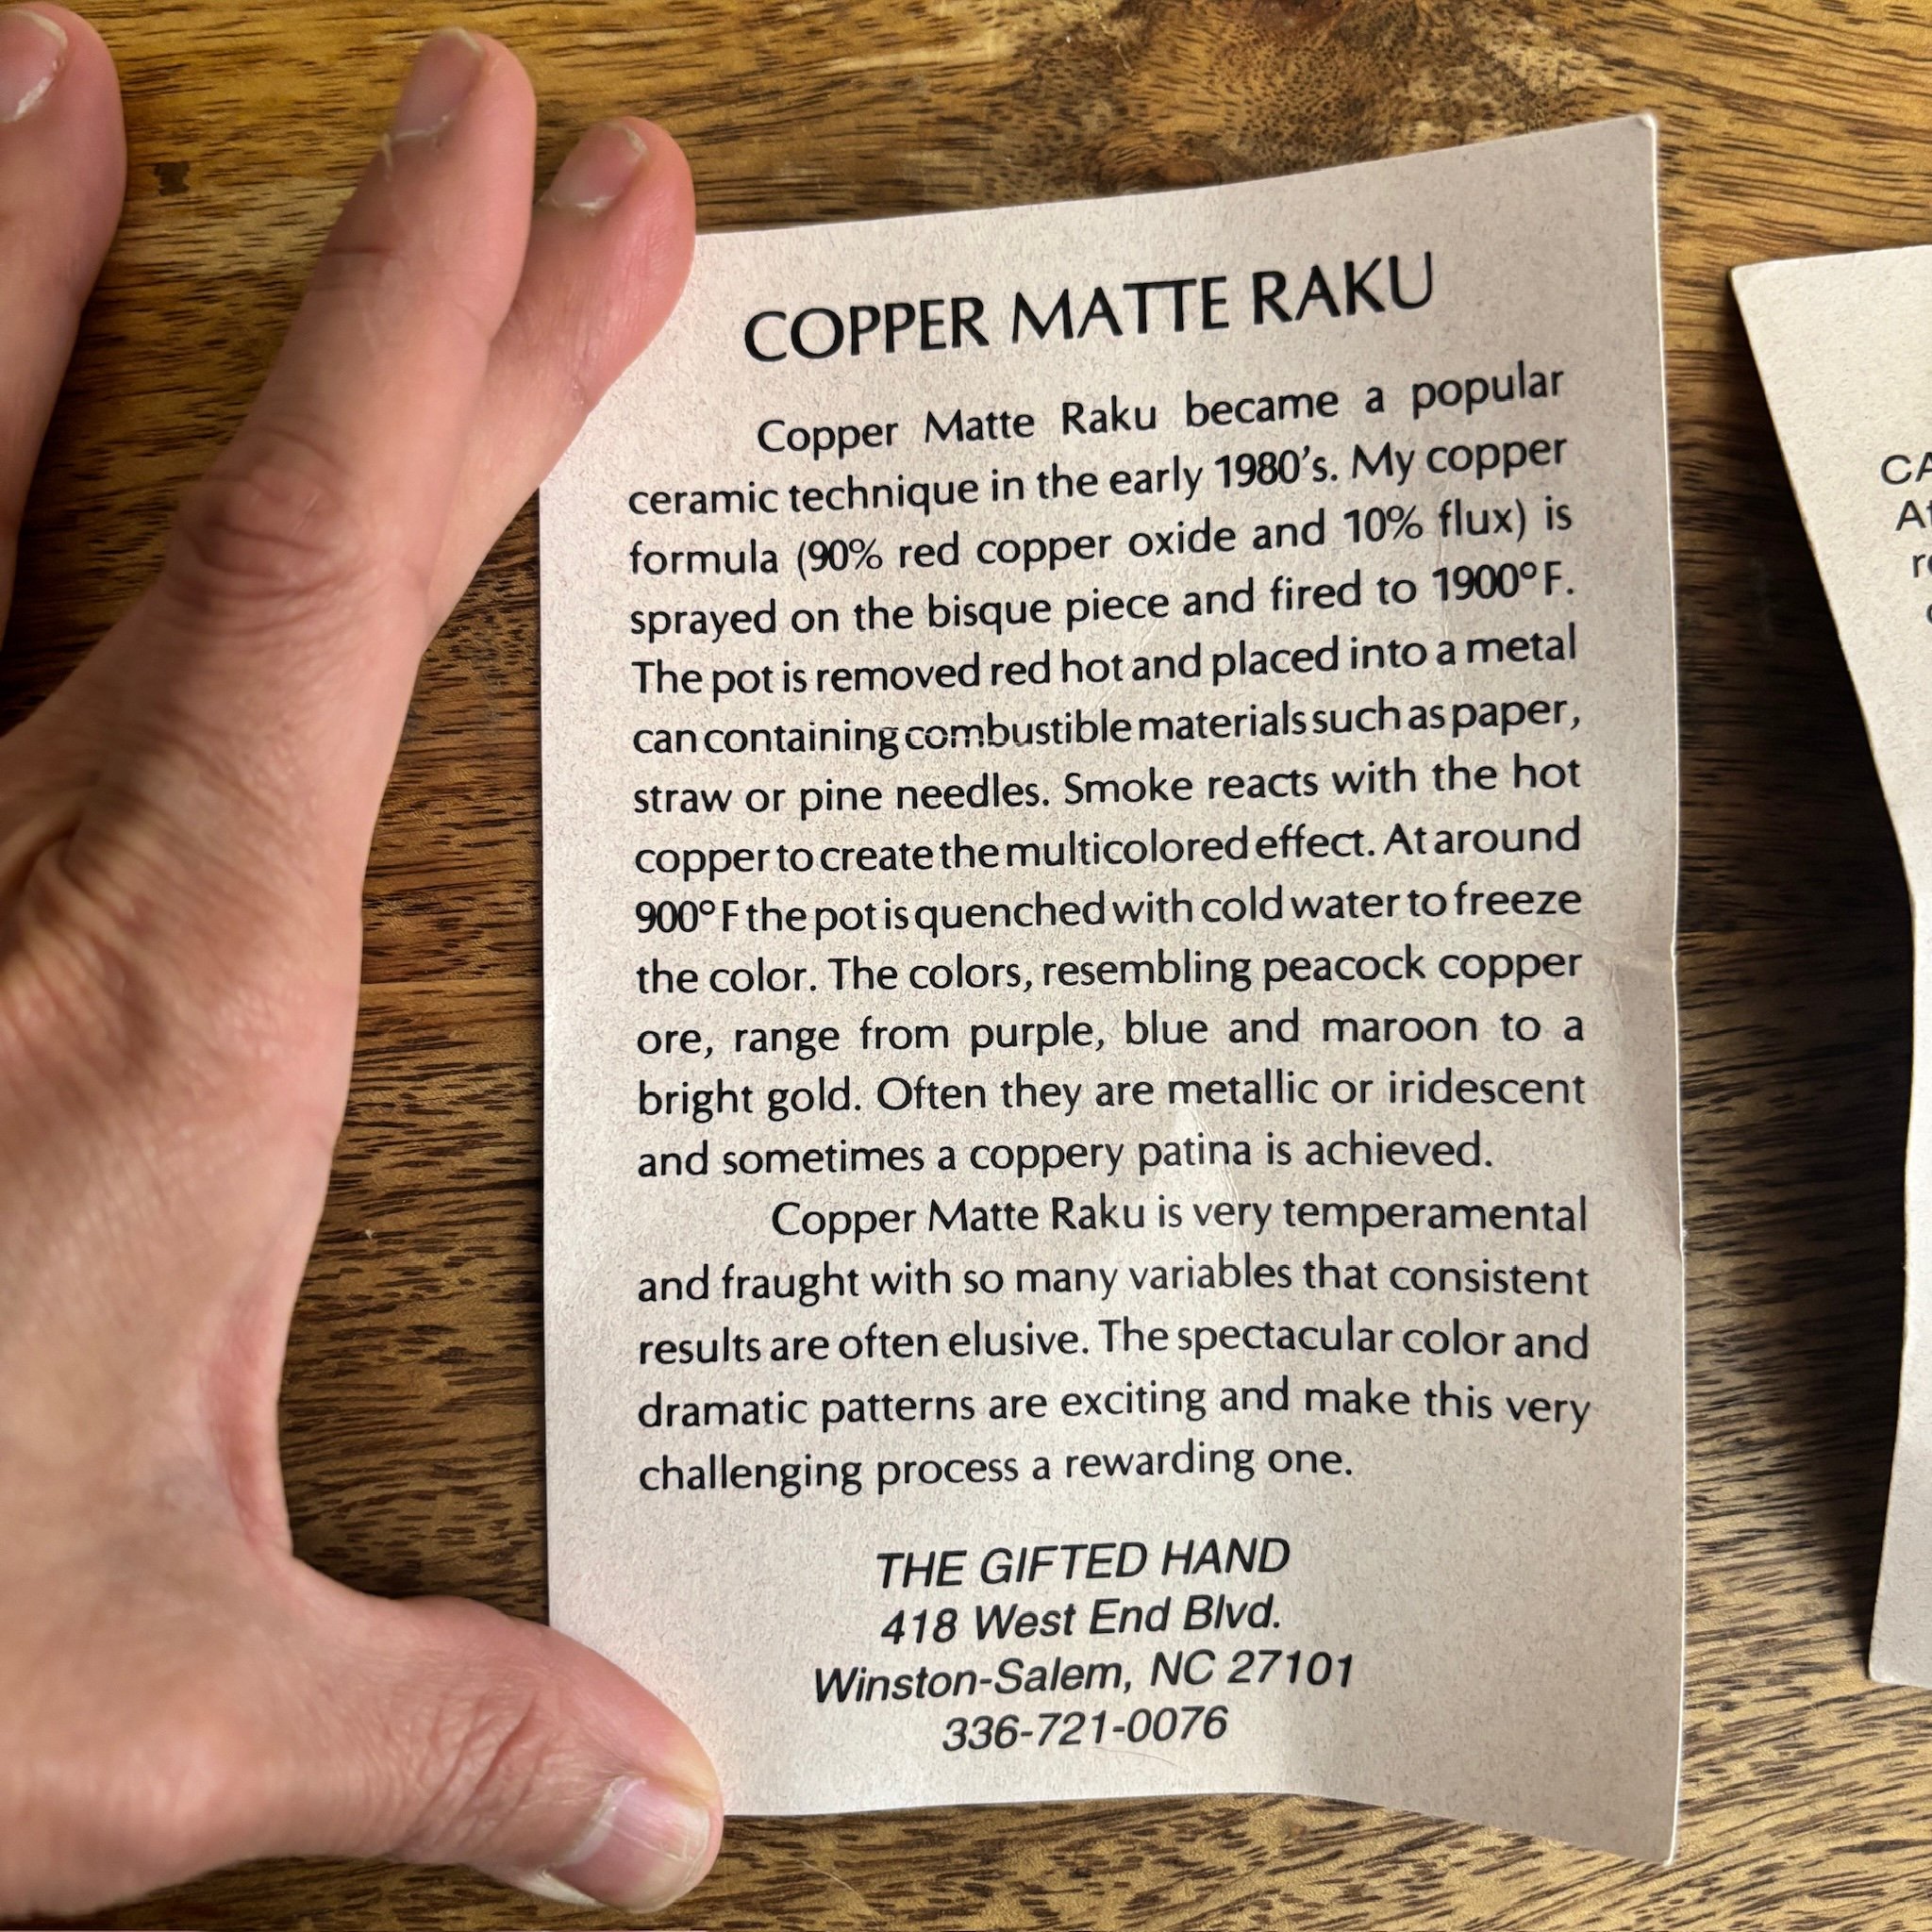 COPPER MATTE RAKU
Copper Matte Raku became a popular
ceramic technique in the early 1980's. My copper
formula (90% red copper oxide and 10% flux) is
sprayed on the bisque piece and fired to 1900°F.
The pot is removed red hot and placed into a metal
can containing combustible materials such as paper,
straw or pine needles. Smoke reacts with the hot
copper to create the multicolored effect. At around
900°F the pot is quenched with cold water to freeze
the color. The colors, resembling peacock copper
ore, range from purple, blue and maroon to a
bright gold. Often they are metallic or iridescent
and sometimes a coppery patina is achieved.
Copper Matte Raku is very temperamental
and fraught with so many variables that consistent
results are often elusive. The spectacular color and
dramatic patterns are exciting and make this very
challenging process a rewarding one.
THE GIFTED HAND
418 West End Blvd.
Winston-Salem, NC 27101
336-721-0076